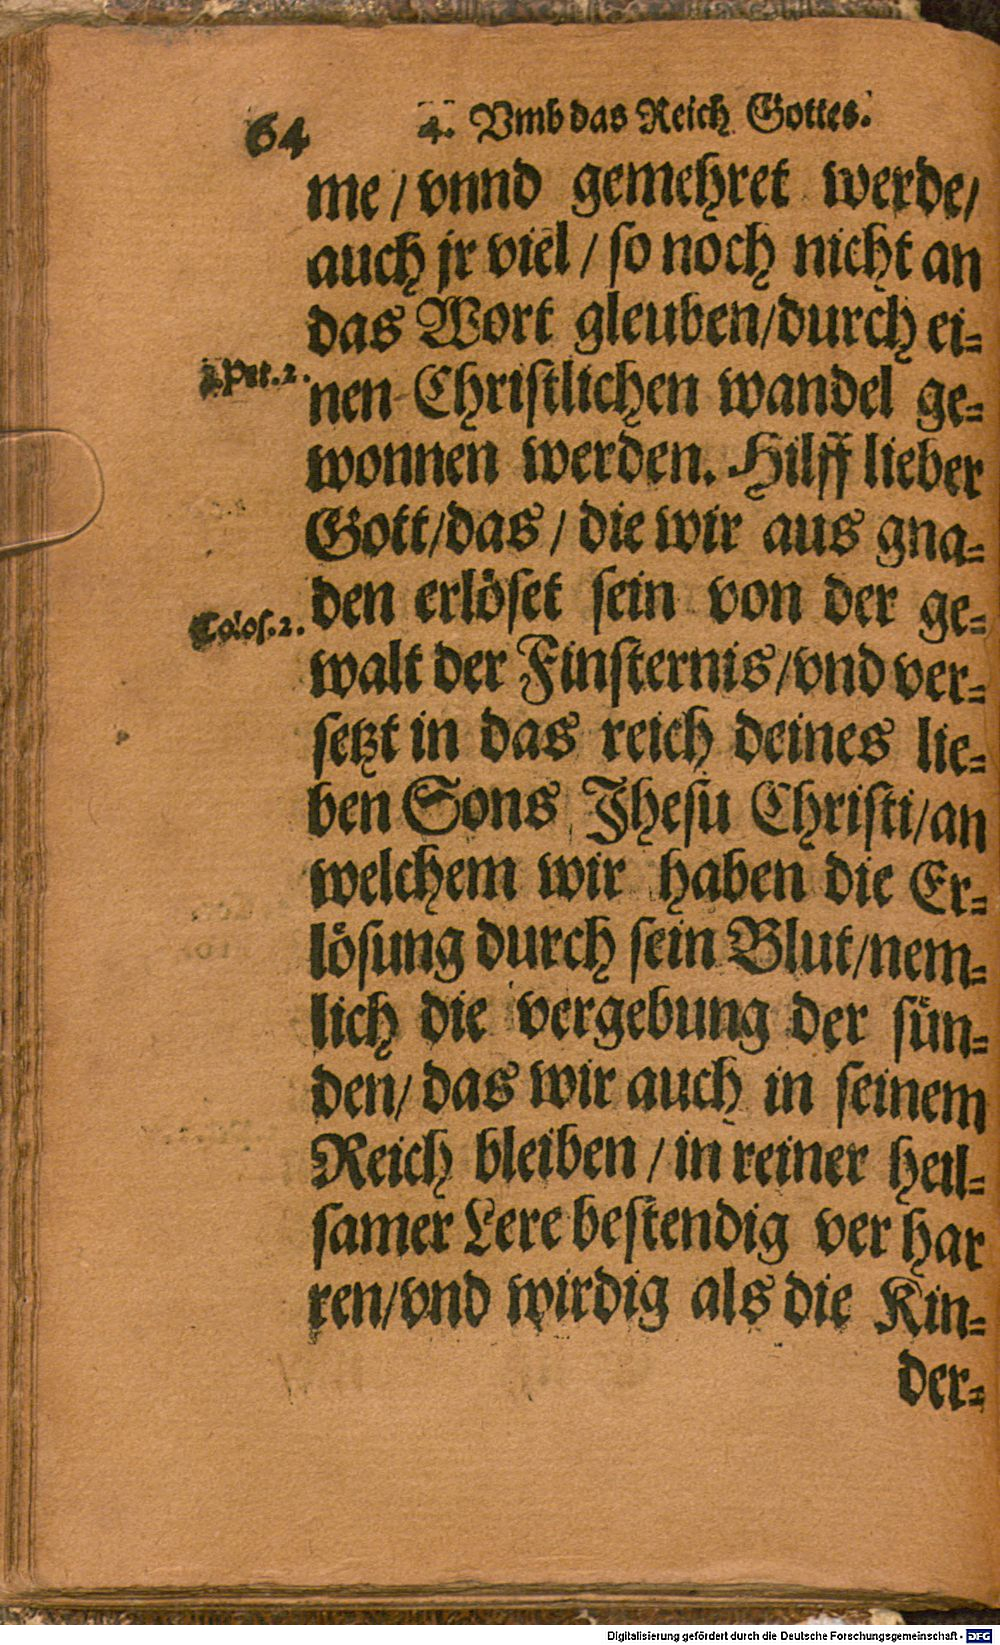 64
4. Vmb das Reich Gottes.
me / vnnd gemehret werde/
auch jr viel / so noch nicht an
das Wort gleuben/durch ei-
1. Pet. 2.
nen Christlichen wandel ge-
wonnen werden. Hilff lieber
Gott/das / die wir aus gna-
den erlöset sein von der ge-
Colos. 2.
walt der Finsternis/vnd ver-
setzt in das reich deines lie-
ben Sons Jhesu Christi/an
welchem wir haben die Er-
lösung durch sein Blut/nem-
lich die vergebung der sün-
den/ das wir auch in seinem
Reich bleiben / in reiner heil-
samer Lere bestendig ver har
ren/vnd wirdig als die Kin-
der-
Digitalisierung gefördert durch die Deutsche Forschungsgemeinschaft - DFG